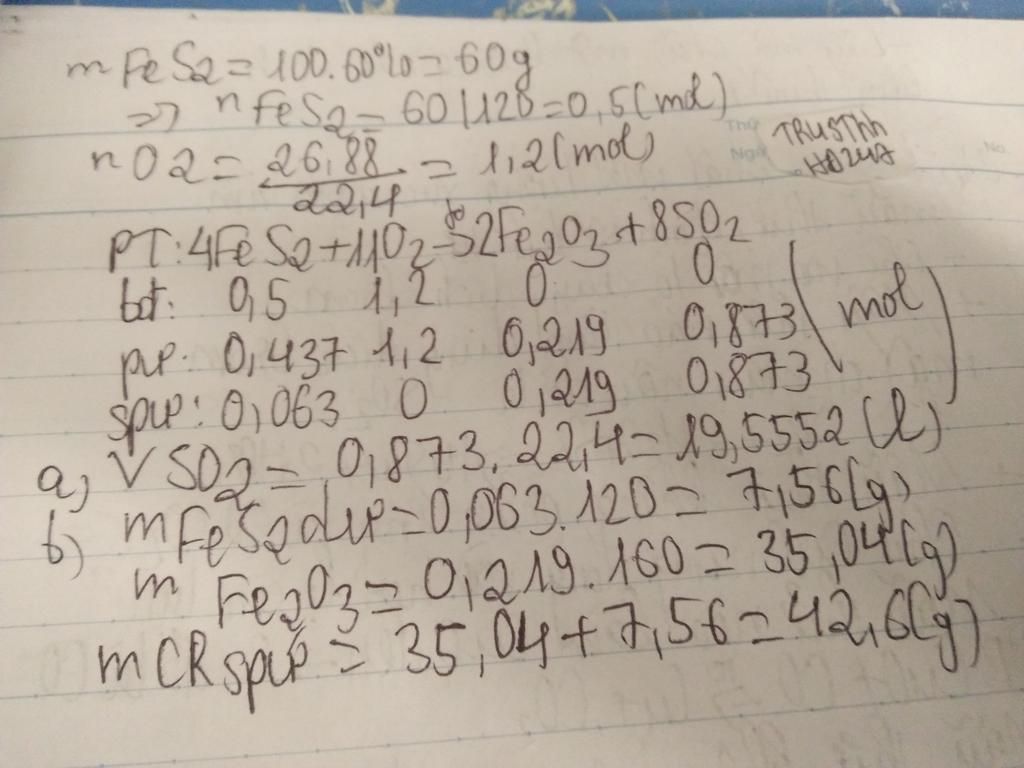 m FeS2 = 100.60% = 60g
=> n FeS2 = 60/120 = 0,5 (mol)
nO2 = 26,88/22,4 = 1,2 (mol)
TRUSTHh
H02UA
PT: 4FeS2 + 11O2 -to> 2Fe2O3 + 8SO2
bđ: 0,5 1,2 0 0
pư: 0,437 1,2 0,219 0,873 (mol)
spư: 0,063 0 0,219 0,873
a) VSO2 = 0,873. 22,4 = 19,5552 (l)
b) mFeS2 dư = 0,063.120 = 7,56 (g)
m Fe2O3 = 0,219.160 = 35,04 (g)
mCR spư = 35,04 + 7,56 = 42,6 (g)